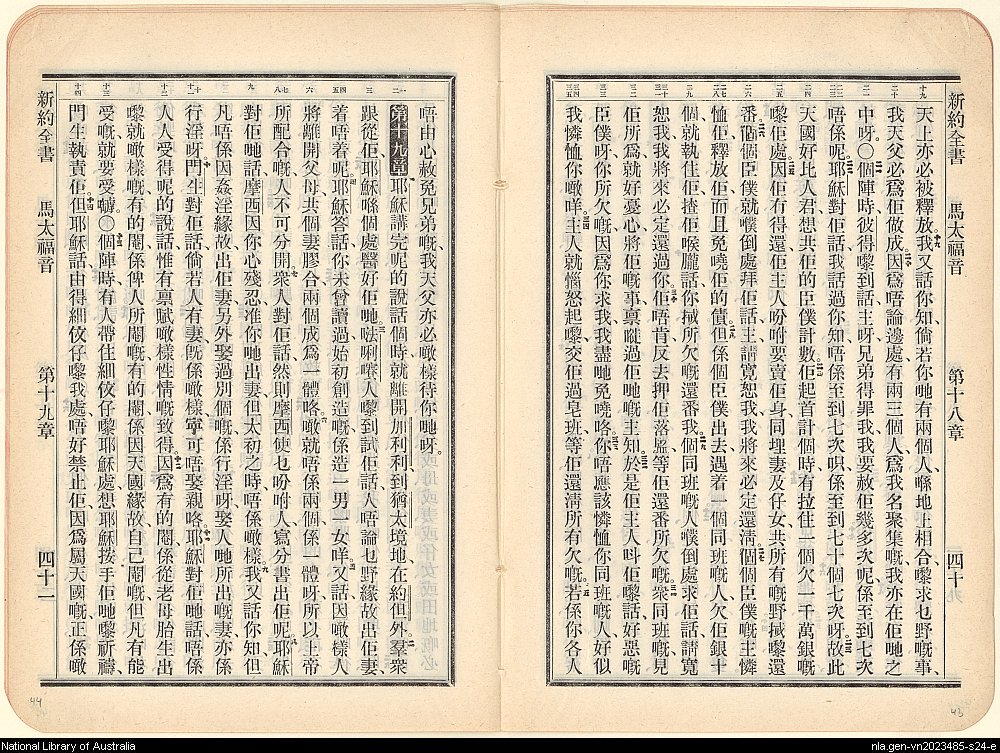 新約全書 馬太福音 第十八章
天上亦必被釋放。我又話你知、倘若你哋有兩個人、喺地上相合、嚟求乜野嘅事、
我天父必爲佢做成。因爲唔論邊處有兩三個人、爲我名聚集嘅、我亦在佢哋之
中呀。〇個陣時、彼得嚟到話、主呀、兄弟得罪我、我要赦佢幾多次呢、係至到七次
唔係呢。耶穌對佢話、我話過你知、唔係至到七次、㗎係至到七十個七次呀。故此
天國好比人君、想共佢的臣僕計數。佢起首計個時、有拉住一個欠一千萬銀嘅、
嚟佢處。因佢冇得還、佢主人吩咐要賣佢身、同埋妻及仔女、共所有嘅野、㧜嚟還
番。個臣僕就僕倒處拜佢話、主請寬恕我、我將來必定還淸。個個臣僕嘅主、憐
恤佢、釋放佢、而且免曉佢的債。但係個臣僕出去、遇着一個同班嘅人、欠佢銀十
個、就執住佢、揸佢喉嚨話、你㧜所欠嘅還番我。個同班嘅人、僕倒處求佢話、請寬
恕我、我將來必定還過你。佢唔肯、反去押佢落監、等佢還番所欠嘅。衆同班嘅見
佢所爲、就好憂心、將佢嘅事、禀曉過佢哋嘅主知。於是佢主人呌佢嚟話、好惡嘅
臣僕呀、你所欠嘅、因爲你求我、我盡哋免曉咯。你唔應該憐恤你同班嘅人、好似
我憐恤你噉咩。主人就惱怒起嚟、交佢過皂班、等佢還淸所有欠嘅。若係你各人
新約全書 馬太福音 第十九章 四十二
唔由心赦免兄弟嘅、我天父亦必噉樣待你哋呀。
第十九章 耶穌講完呢的說話、個時就離開加利利、到猶太境地、在約但外。羣衆
跟從佢、耶穌喺個處醫好佢哋。㗎唎㘔人嚟到試佢話、人唔論乜野緣故出佢妻、
着唔着呢。耶穌答話、你未曾讀過、始初創造嘅、係造一男一女咩。又話、因噉樣人
將離開父母、共個妻膠合、兩個成爲一體咯。噉就唔係兩個、係一體呀、所以上帝
所配合嘅、人不可分開。衆人對佢話、然則摩西使乜吩咐人寫分書出佢呢。耶穌
對佢哋話、摩西因你心殘忍、准你哋出妻、但太初之時、唔係噉樣。我又話你知、但
凡唔係因姦淫緣故出佢妻、另外娶過別個嘅、係行淫呀、娶人哋所出嘅妻、亦係
行淫呀。門生對佢話、倘若人有妻、旣係噉樣、寧可唔娶親咯。耶穌對佢哋話、唔係
人人受得呢的說話、惟有禀賦噉樣性情嘅致得。因爲有的閹、係從老母胎生出
嚟就噉樣嘅、有的閹、係俾人所閹嘅、有的閹、係因天國緣故、自己閹嘅、但凡有能
受嘅、就要受囉。〇個陣時、有人帶住細仪仔、嚟耶穌處、想耶穌按手佢哋嚟祈禱、
門生執責佢。但耶穌話、由得細仪仔嚟我處、唔好禁止佢、因爲屬天國嘅、正係噉
National Library of Australia
nla.gen-vn2023485-s24-e